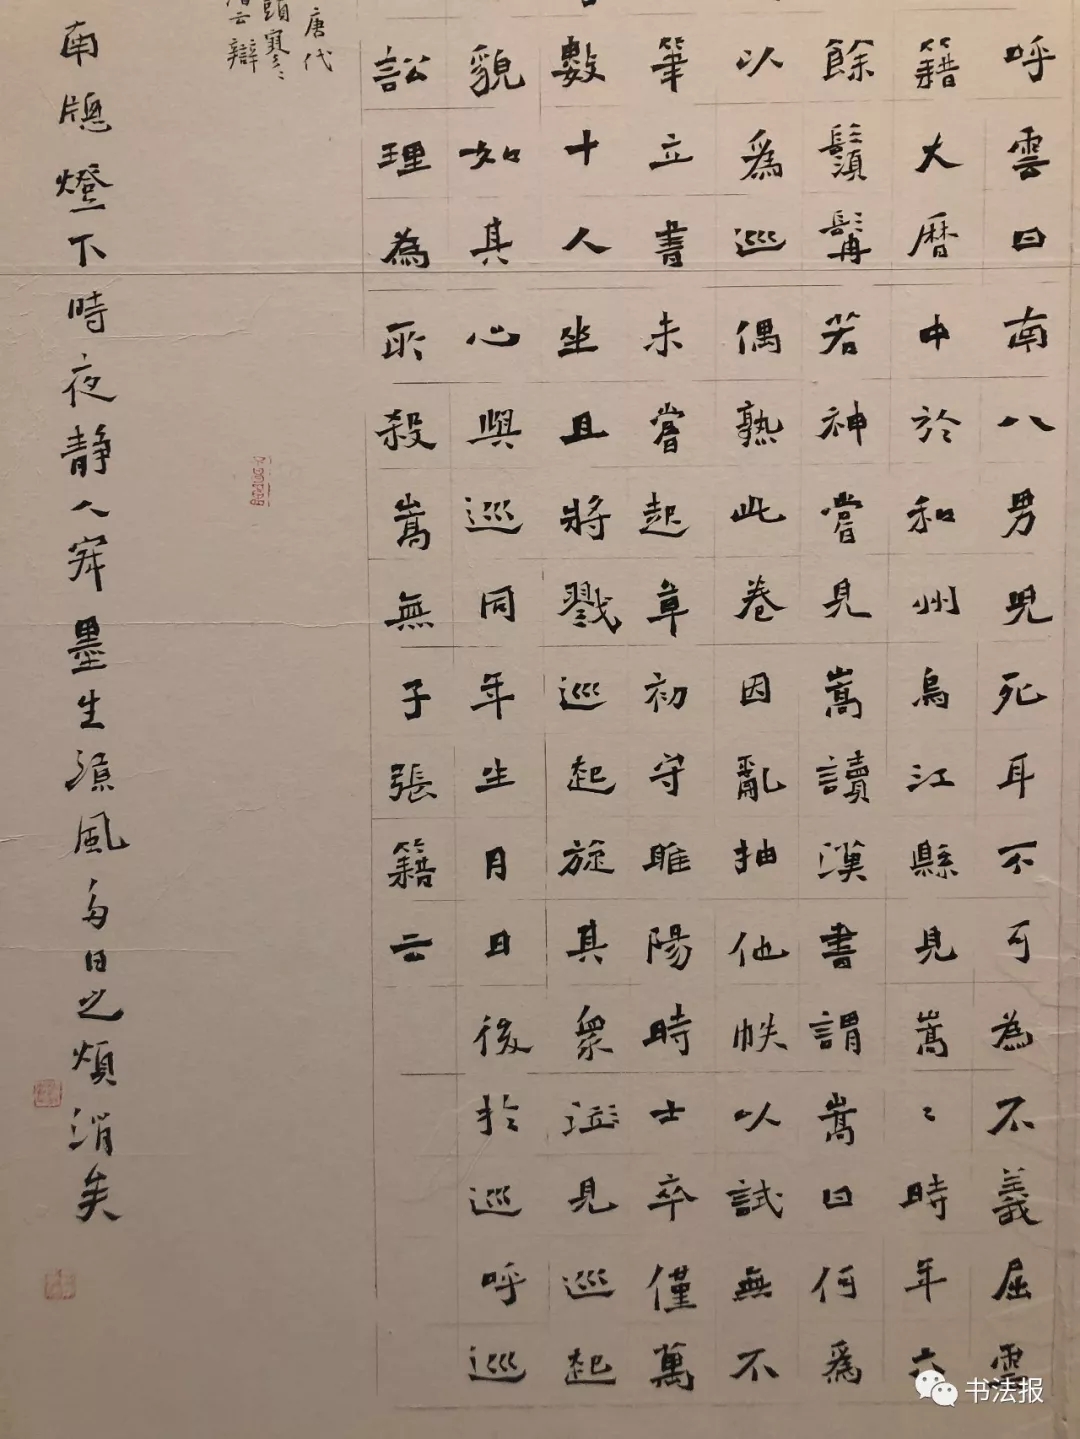 呼雲曰南八男兒死耳不可為不義屈雲
籍大曆中於和州烏江縣見嵩〻時年六
餘鬚髯若神嘗見嵩讀漢書謂嵩曰何爲
以爲巡偶熟此卷因亂抽他帙以試無不
筆立書未嘗起草初守睢陽時士卒僅萬
數十人坐且將戮巡起旋其衆泣見巡起
貌如其心與巡同年生月日後於巡呼巡
訟理為所殺嵩無子張籍云
唐代
頭寒〻
云辯
南牕燈下時夜靜人寂墨生涼風日之煩消矣
书法报